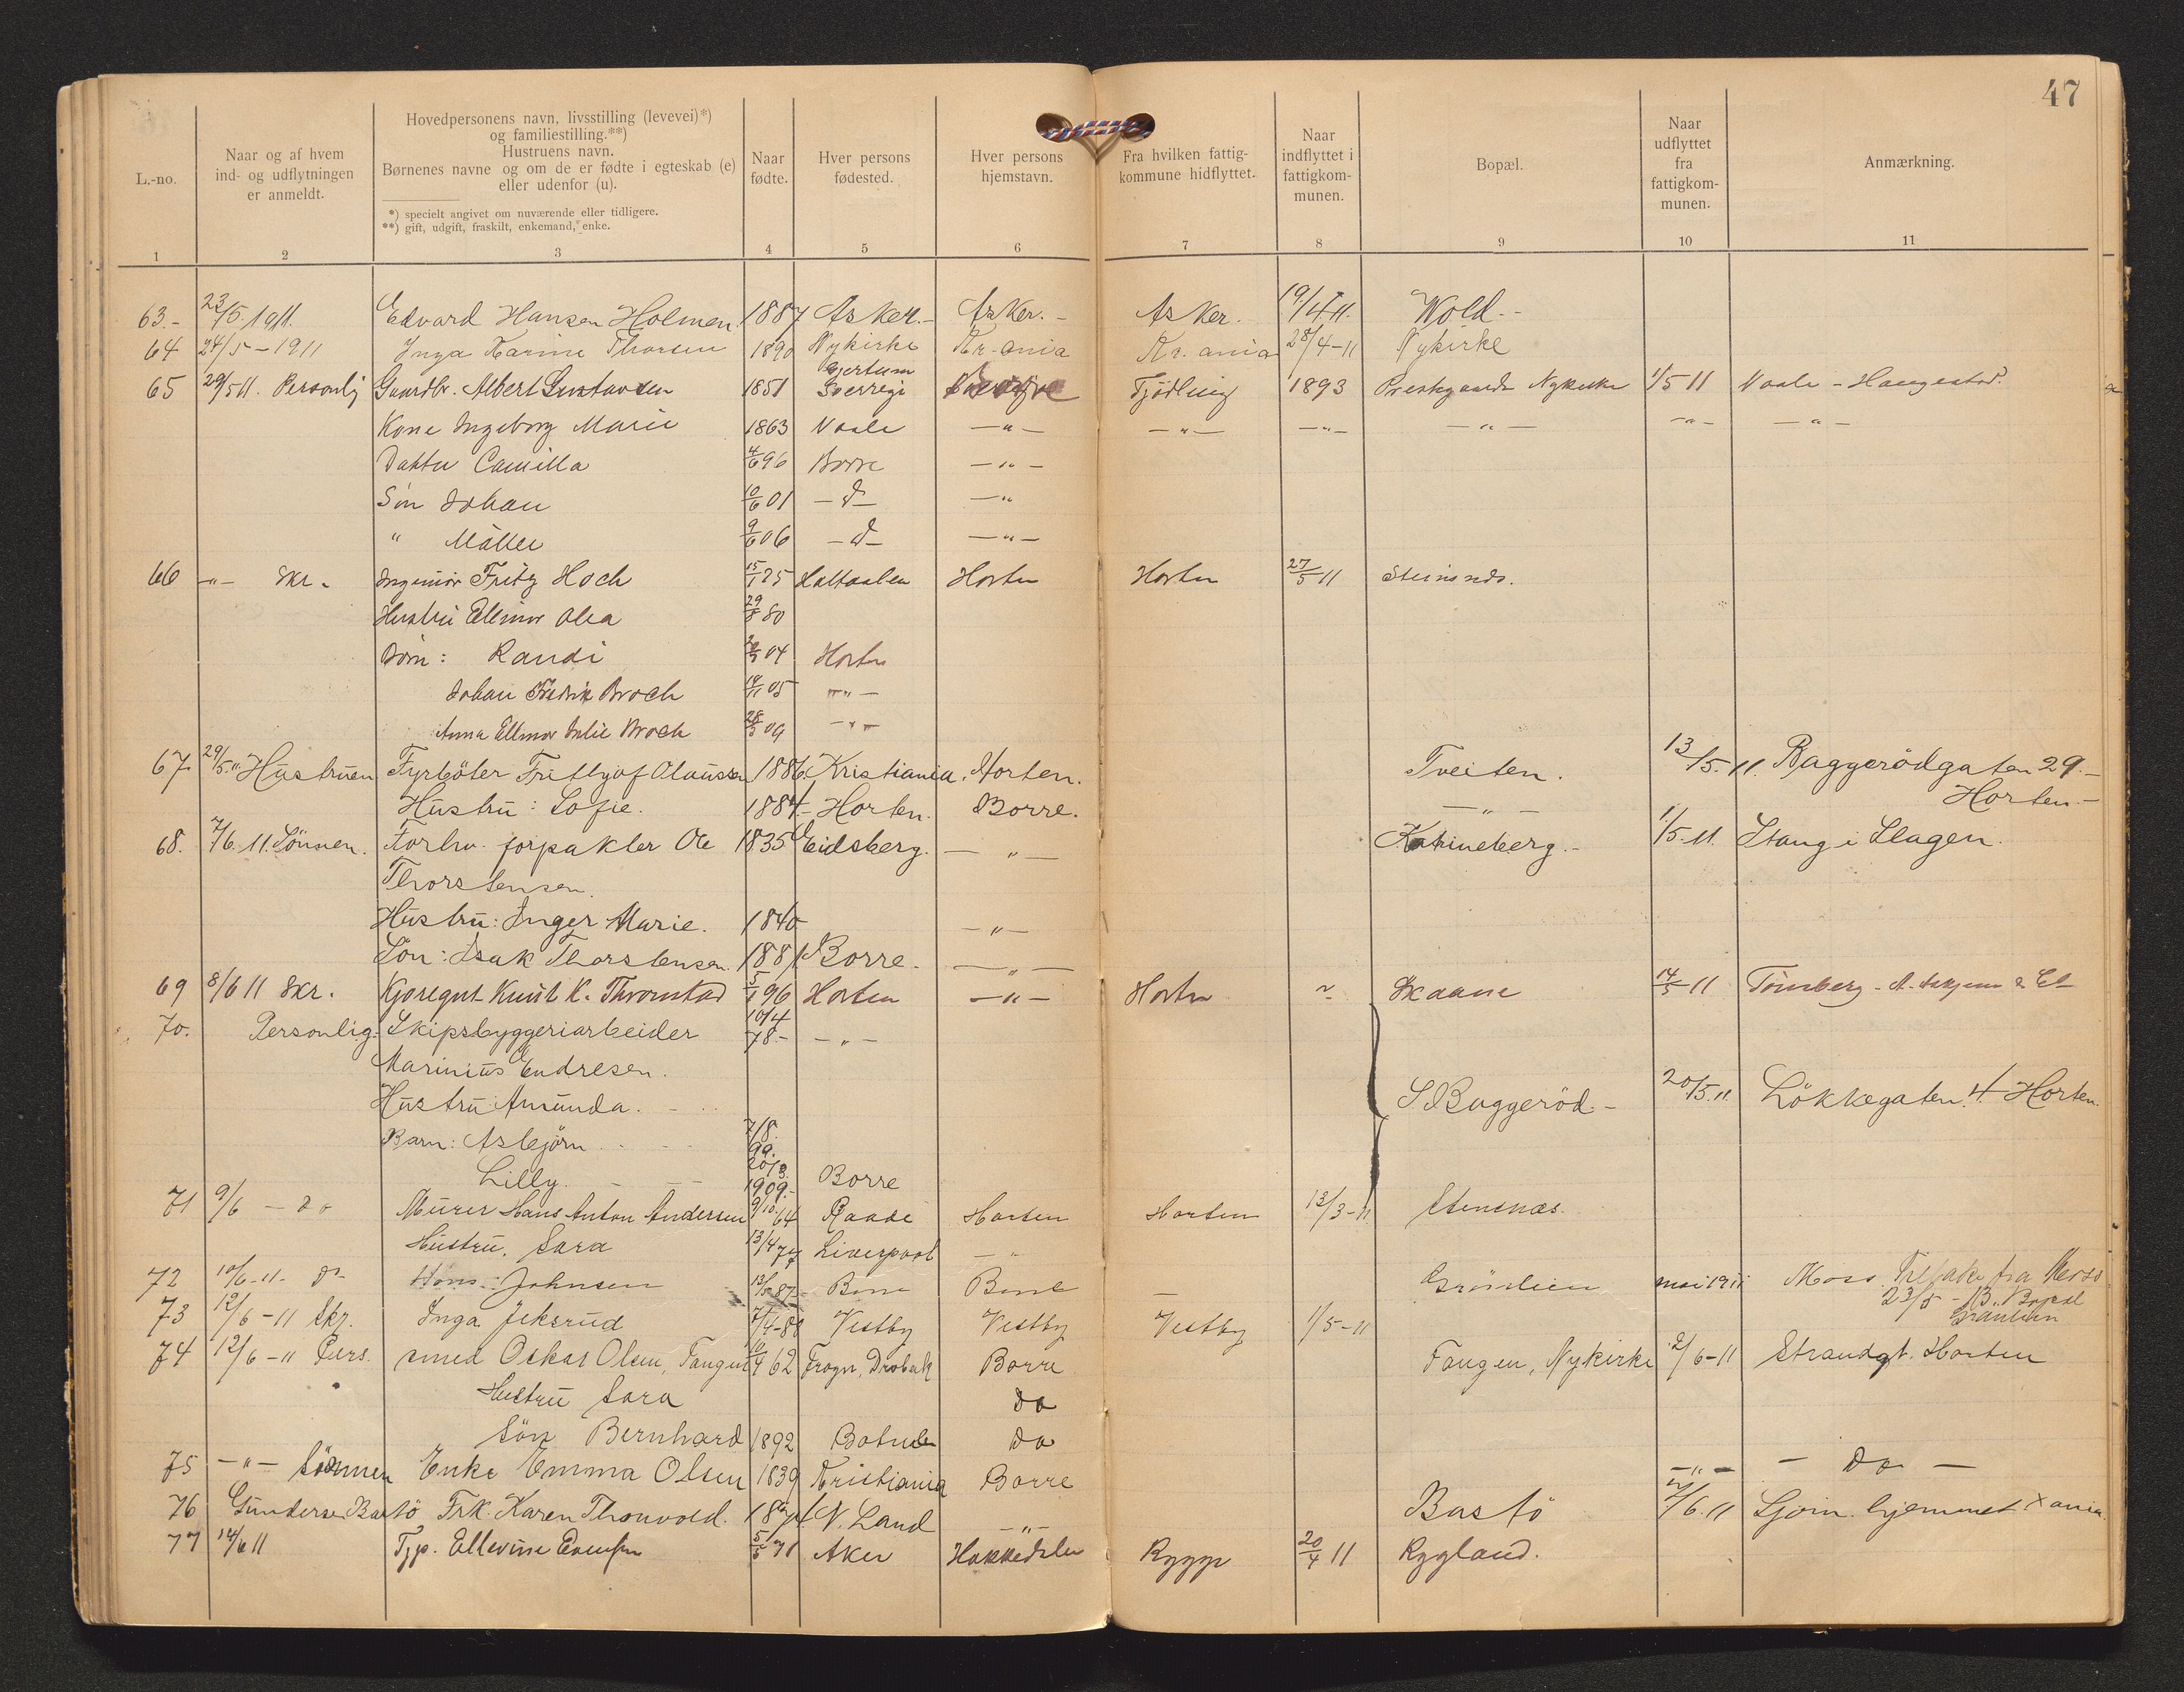 47
L.-no.
Naar og af hvem
ind- og udflytningen
er anmeldt.
Hovedpersonens navn, livsstilling (levevei)*)
og familiestilling.**)
Hustruens navn.
Børnenes navne og om de er fødte i egteskab (e)
eller udenfor (u).
*) specielt angivet om nuværende eller tidligere.
**) gift, udgift, fraskilt, enkemand, enke.
Naar
fødte.
Hver persons
fødested.
Hver persons
hjemstavn.
Fra hvilken fattig-
kommune hidflyttet.
Naar
indflyttet i
fattigkom-
munen.
Bopæl.
Naar
udflyttet
fra
fattigkom-
munen.
Anmærkning.
1 2 3 4 5 6 7 8 9 10 11
63.- 23/5 1911. Edvard Hansen Holmen. 1887 Asker.- Asker.- Asker. 19/4 11. Wold.-
64 24/5-1911 Inga Karine Thorsen 1890 Nykirke Kr.ania Kr.ania 28/4-11 Nykirke
65 29/5 11. Personlig Gaardbr. Albert Gustavsen 1851 Sverrige Tjödling 1893 Prestegaarden Nykirke 1/5 11 Vaale - Haugestad
Kone Ingeborg Marie 1863 Vaale -"- -"- -"- -"- -"- -"-
Datter Camilla 4/6 96 Borre -"-
Sön Johan 10/6 01 -d- -"
" Möller 9/6 06 -d- -"-
66 -"- Skr. Ingeniör Fritz Hoch 15/1 75 Holtaalen Horten Horten 27/5 11 Steinsnds.
Hustru Ellinor Olea 29/8 80
Börn: Randi 04 Horten
Johan Fredrik Broch 14/11 05 -"-
Anna Ellinor Julie Broch 28/3 09 -"-
67. 29/5." Hustruen Fyrböter Frithjof Olaussen 1886. Kristiania. Horten. Tveiten. 13/5.11. Baggerödgaten 29.-
Hustru: Sofie. 1884.- Horten. Borre. -"- Horten.-
68. 7/6.11. Sönnen. Forhv. forpakter Ole 1835 Eidsberg. -"- Katrineberg.- 1/5-11. Stang i Slagen.
Thorstensen.
Hustru: Inger Marie. 1840 -"-
Sön: Isak Thorstensen. 1881. Borre. -"-
69 8/6 11 Skr. Kjøregut Knut K. Thronstad 5/1 96 Horten -"- Horten ~ Skaane 14/5-11 Tönsberg
70. Personlig. Skipsbyggeriarbeider 10/4 78.- -"-
Marinius Endresen.
Hustru Amunda. S. Baggeröd- 20/5.11. Lökkegaten 4. Horten.
Barn: Asbjörn 7/8. 99.
Lilly. 20/3. 1909.- Borre
71 9/6 - do Murer Hans Anton Andersen 9/10 64 Raade Horten Horten 13/3-11 Stensnæs.
Hustru, Sara 13/4 77 Liverpool -"
72 10/6-11- do Hans Johnsen 13/5 87- Borre Borre - Grönlien mai 1911 Moss. Tilbake fra Moss
23/5 - 13. Bopæl
Grönlien
73 12/6-11 Skr. Inga Jeksrud 7/4-88 Vestby Vestby Vestby 1/5-11
74 12/6-11 Pers. smed Oskar Olsen, Tangen 10/4 62 Frogn, Dröbak Borre Tangen, Nykirke 2/6-11 Strandgt. Horten
Hustru Sara do
Sön Bernhard 1892 Botne do
75 -"- Sönnen Enke Emma Olsen 1839 Kristiania Borre -"- - do -
76 Gundersen Bastö Frk. Karen Thonvold. 1874. N. Land -"- Bastö 7/6.11 Sjöm. hjemmet Xania
77 14/6 11 5/5 71 Aker Hakkedalen Rygge 20/4 11 Rygland.